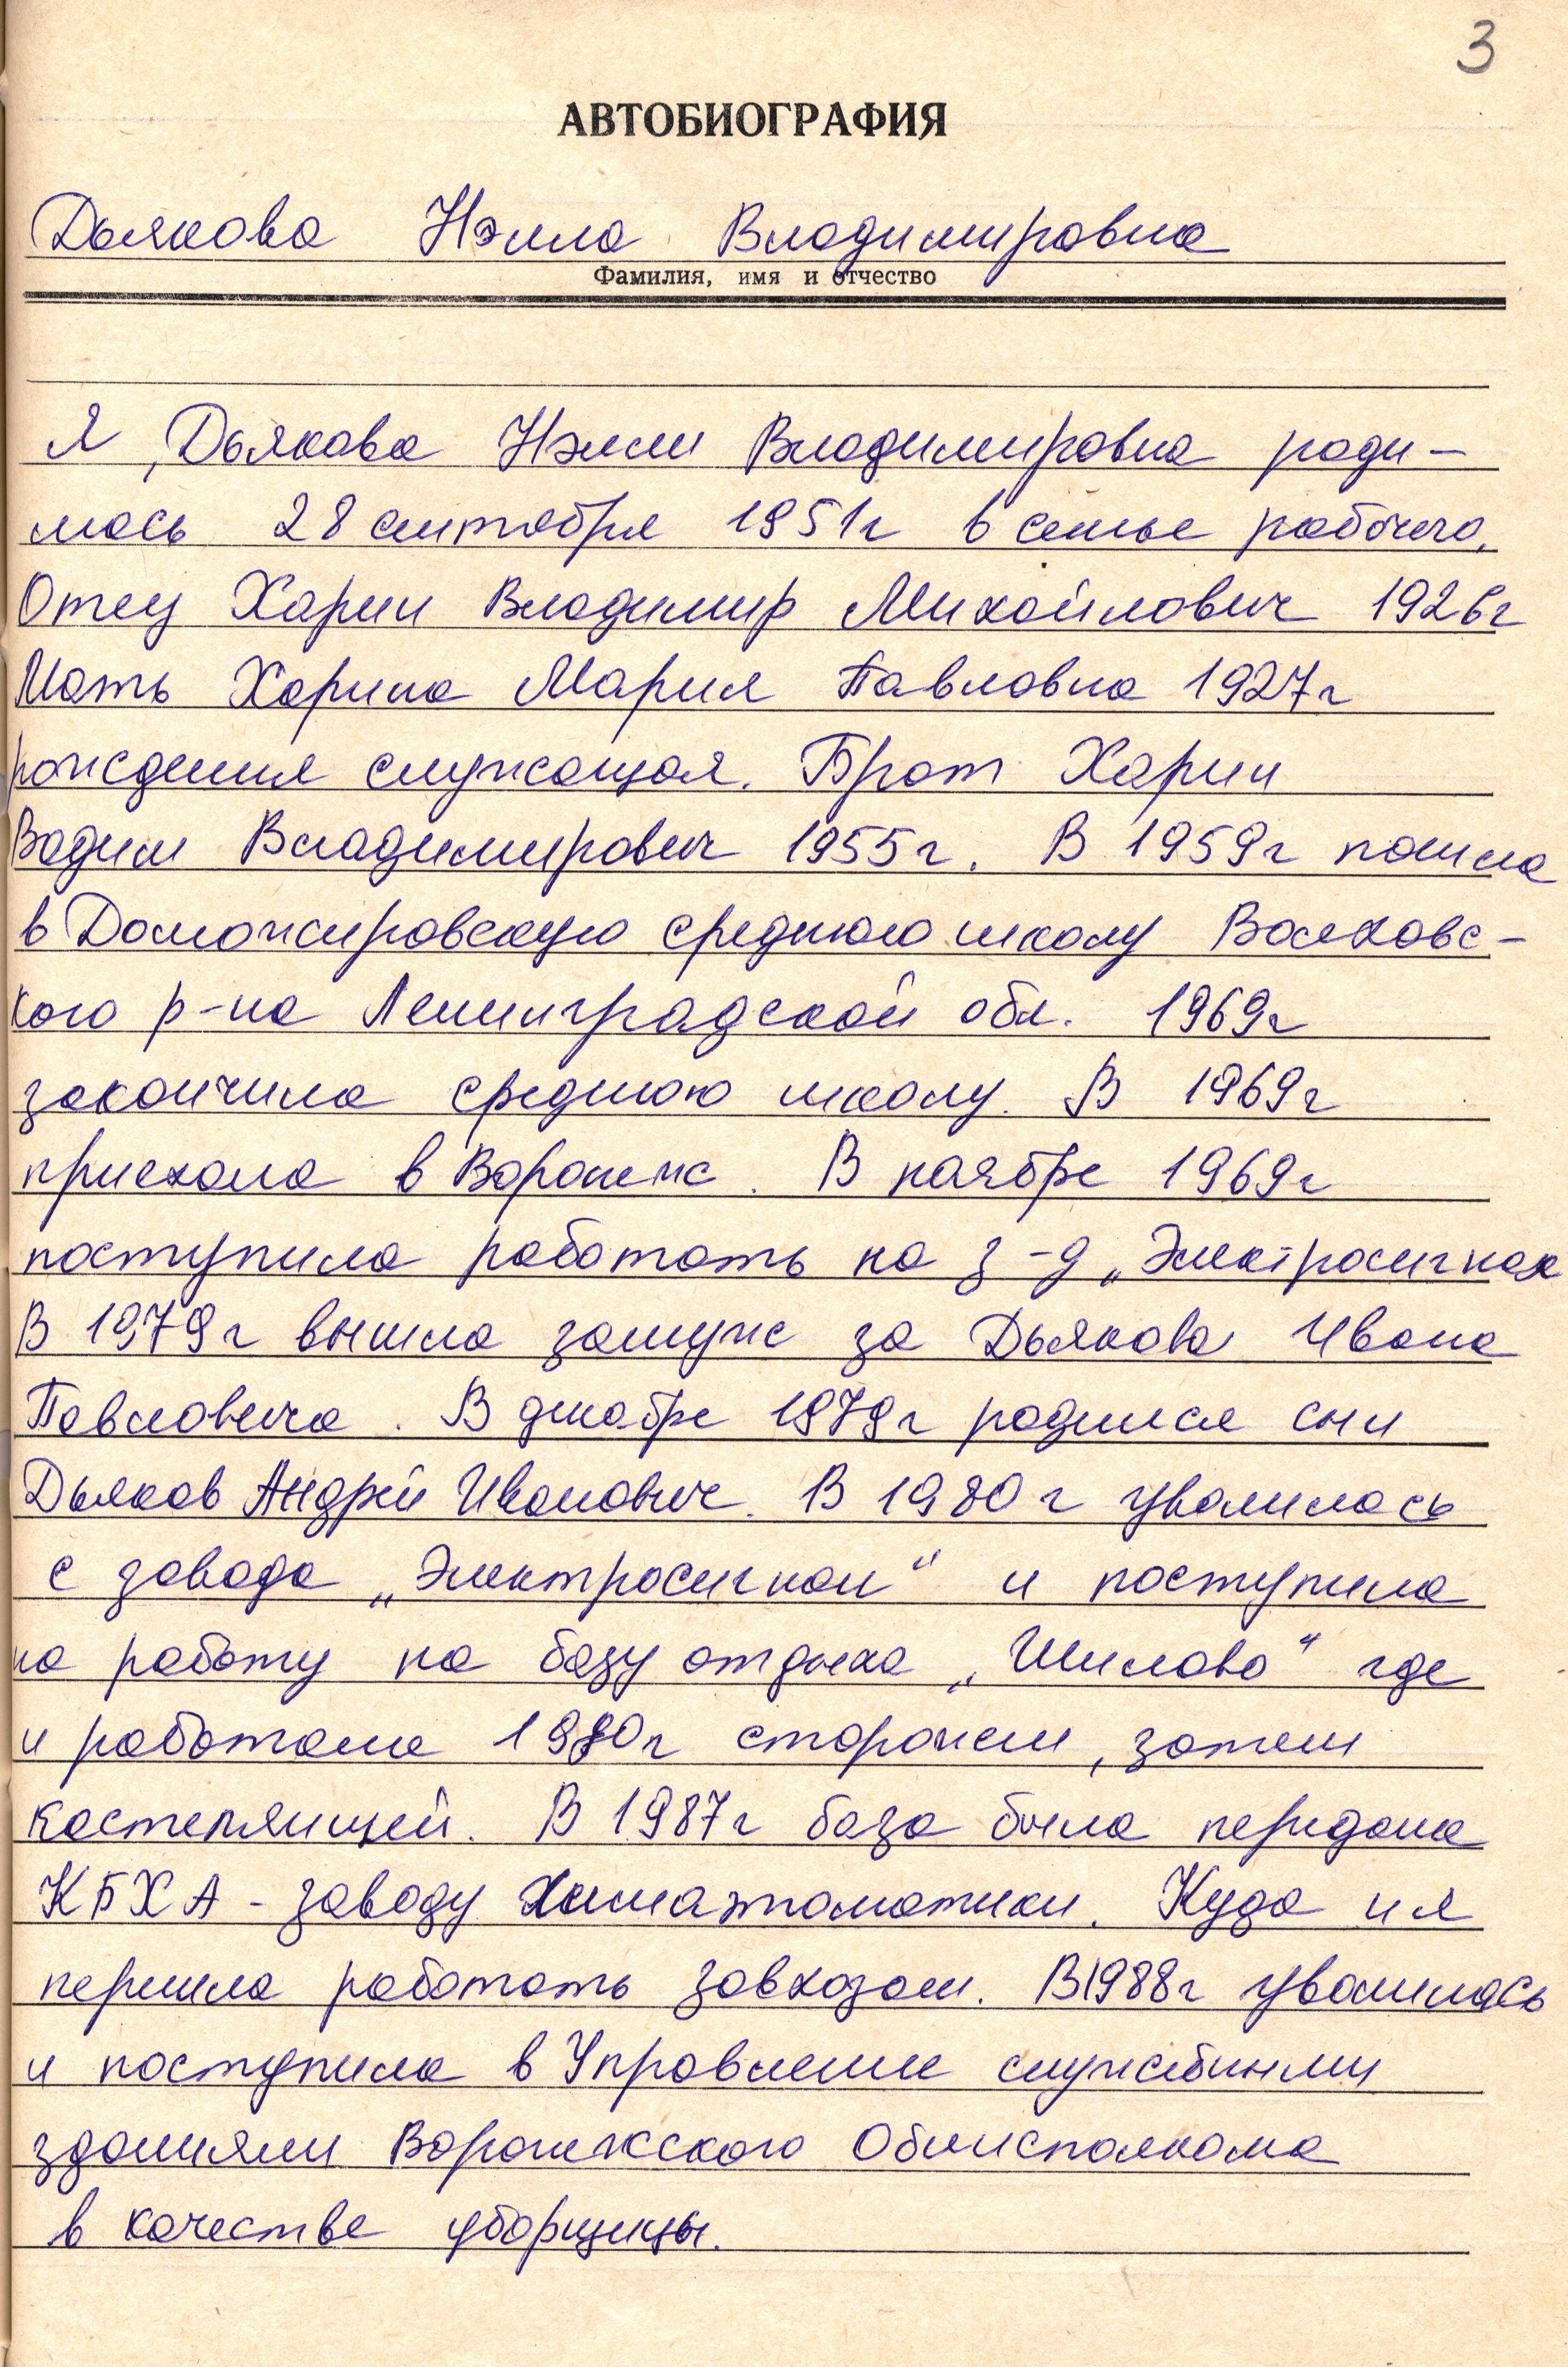 3
АВТОБИОГРАФИЯ
Дьякова Нэлла Владимировна
Фамилия, имя и отчество
Я, Дьякова Нэлли Владимировна роди-
лась 28 сентября 1951г в семье рабочего.
Отец Харин Владимир Михайлович 1926г
Мать Харина Мария Павловна 1927г
рождения служащая. Брат Харин
Вадим Владимирович 1955г. В 1959г пошла
в Доможировскую среднюю школу Волховс-
кого р-на Ленинградской обл. 1969г
закончила среднюю школу. В 1969г
приехала в Воронеж. В ноябре 1969г
поступила работать на з-д „Электросигнал
В 1979г вышла замуж за Дьякова Ивана
Павловича. В декабре 1979г родился сын
Дьяков Андрей Иванович. В 1980г уволилась
с завода „Электросигнал" и поступила
на работу на базу отдыха „Шилово" где
и работала 1980г сторожем, затем
кастеляншей. В 1987г база была передана
КБХА - заводу химавтоматики. Куда и я
перешла работать завхозом. В 1988г уволилась
и поступила в Управление служебными
зданиями Воронежского Облисполкома
в качестве уборщицы.